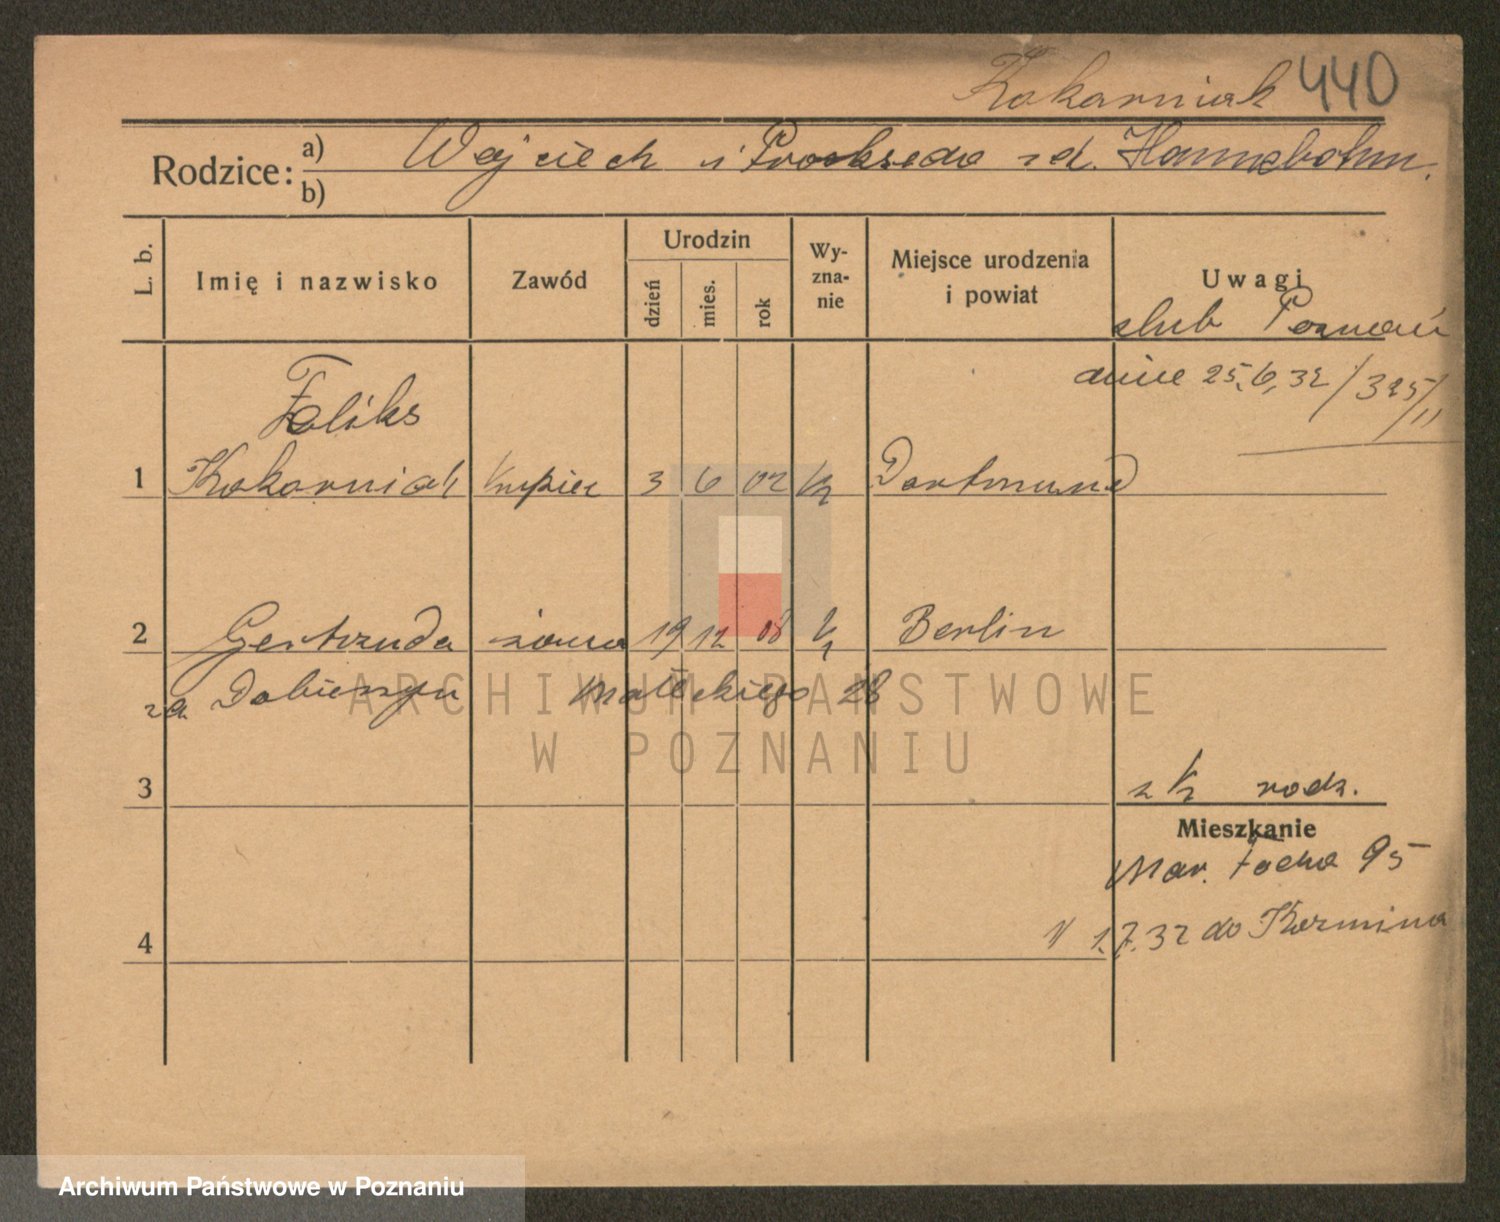 Kokarniak 440
Rodzice: a) b)
Wojciech i Prakseda zd. Hannebohm.
L. b.
Imię i nazwisko
Zawód
Urodzin
dzień
mies.
rok
Wy-
zna-
nie
Miejsce urodzenia
i powiat
Uwagi
slub Poznań
dnia 25.6.32 / 325/II
Feliks
1 Kokarniak kupiec 3 6 02 Dortmund
2 Gertruda żona 19 12 08 Berlin
za Dobieszyn Małeckiego 28
ARCHIWUM PAŃSTWOWE
W POZNANIU
3
z rodz.
Mieszkanie
Mar. Focha 95
4
V 1.7.32 do Kozmina
Archiwum Państwowe w Poznaniu